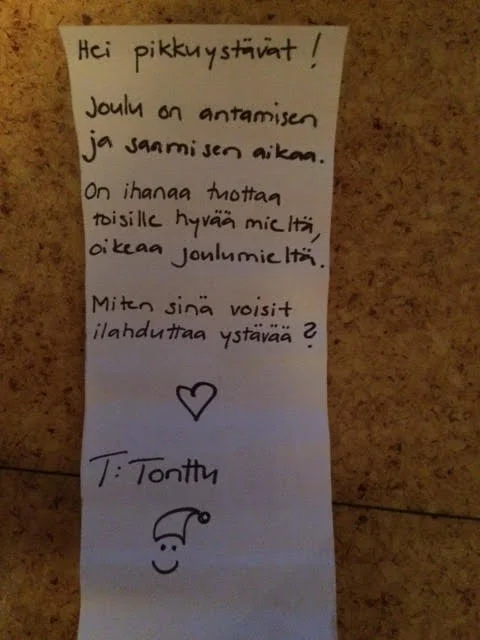 Hei pikkuystävät!
Joulu on antamisen
ja saamisen aikaa.
On ihanaa tuottaa
toisille hyvää mieltä,
oikeaa joulumieltä.
Miten sinä voisit
ilahduttaa ystävää?
T: Tonttu